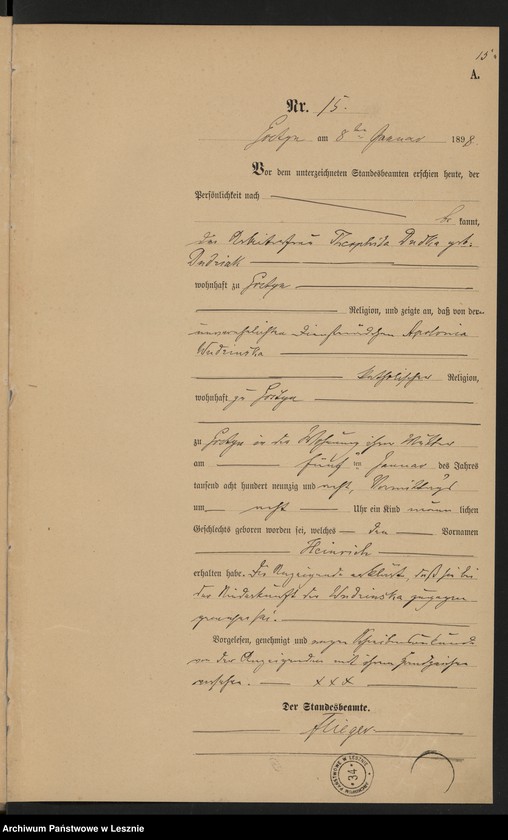 15.
A.
Nr. 15.
Gostyn am 8ten Januar 1898.
Vor dem unterzeichneten Standesbeamten erschien heute, der
Persönlichkeit nach
be kannt,
die Arbeiterfrau Theophila Dudka geb.
Dudziak
wohnhaft zu Gostyn
Religion, und zeigte an, daß von der
unverehelichten Dienstmädchen Apolonia
Wudzinska
katholischer Religion,
wohnhaft zu Gostyn
zu Gostyn in der Wohnung ihrer Mutter
am fünften Januar des Jahres
tausend acht hundert neunzig und acht, Vormittags
um acht Uhr ein Kind männ lichen
Geschlechts geboren worden sei, welches den Vornamen
Heinrich
erhalten habe. Die Anzeigende erklärt, daß sie bei
der Niederkunft der Wudzinska zugegen
gewesen sei.
Vorgelesen, genehmigt und wegen Schreibensunkunde
von der Anzeigenden mit ihrem Handzeichen
versehen. xxx
Der Standesbeamte.
Flieger
34
Archiwum Państwowe w Lesznie